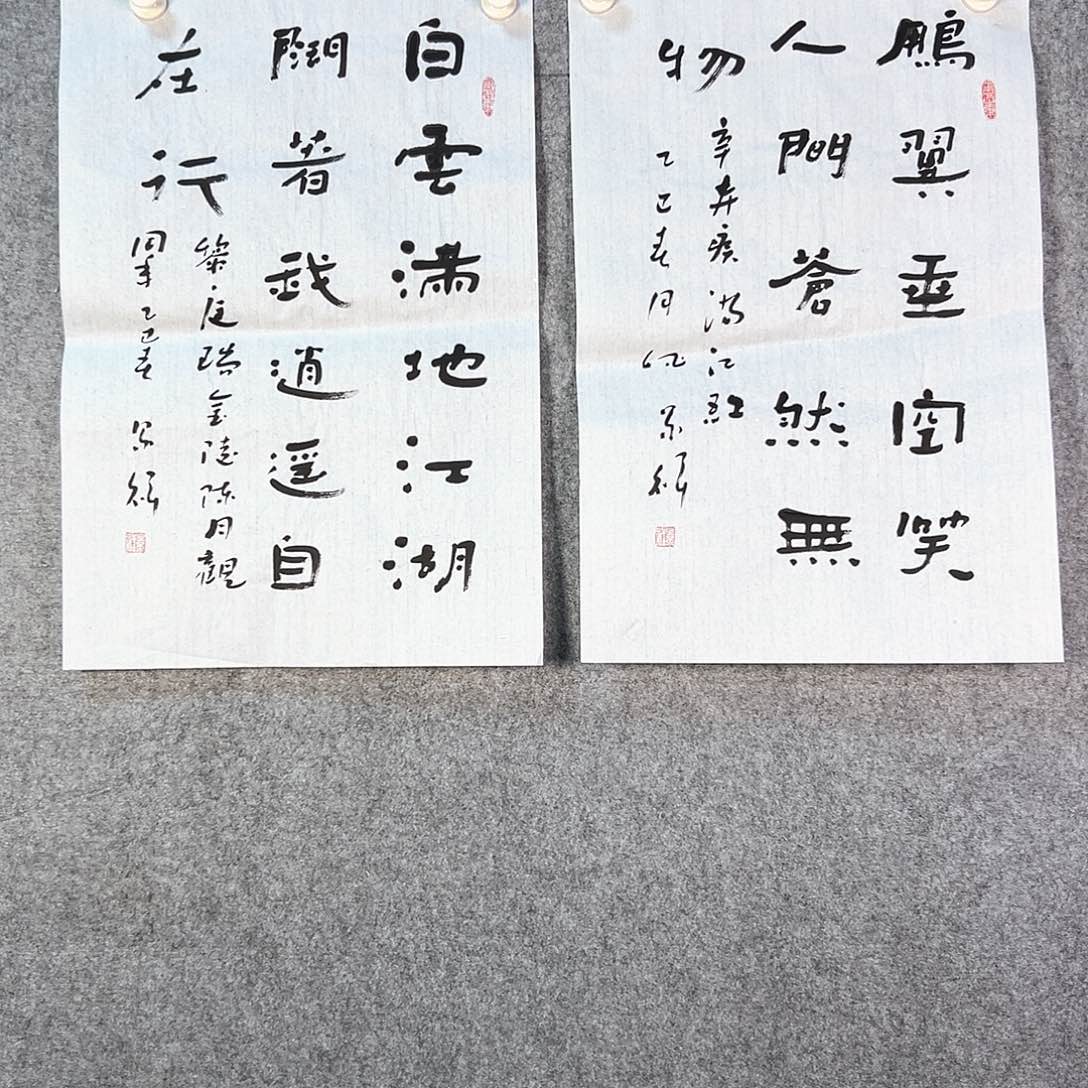 鵬翼垂空笑
人間蒼然無
物
辛弃疾满江红
乙巳春月
白雲满地江湖
闊著我逍遥自
在行
黎廷瑞金陵陈月觀
同年乙巳春